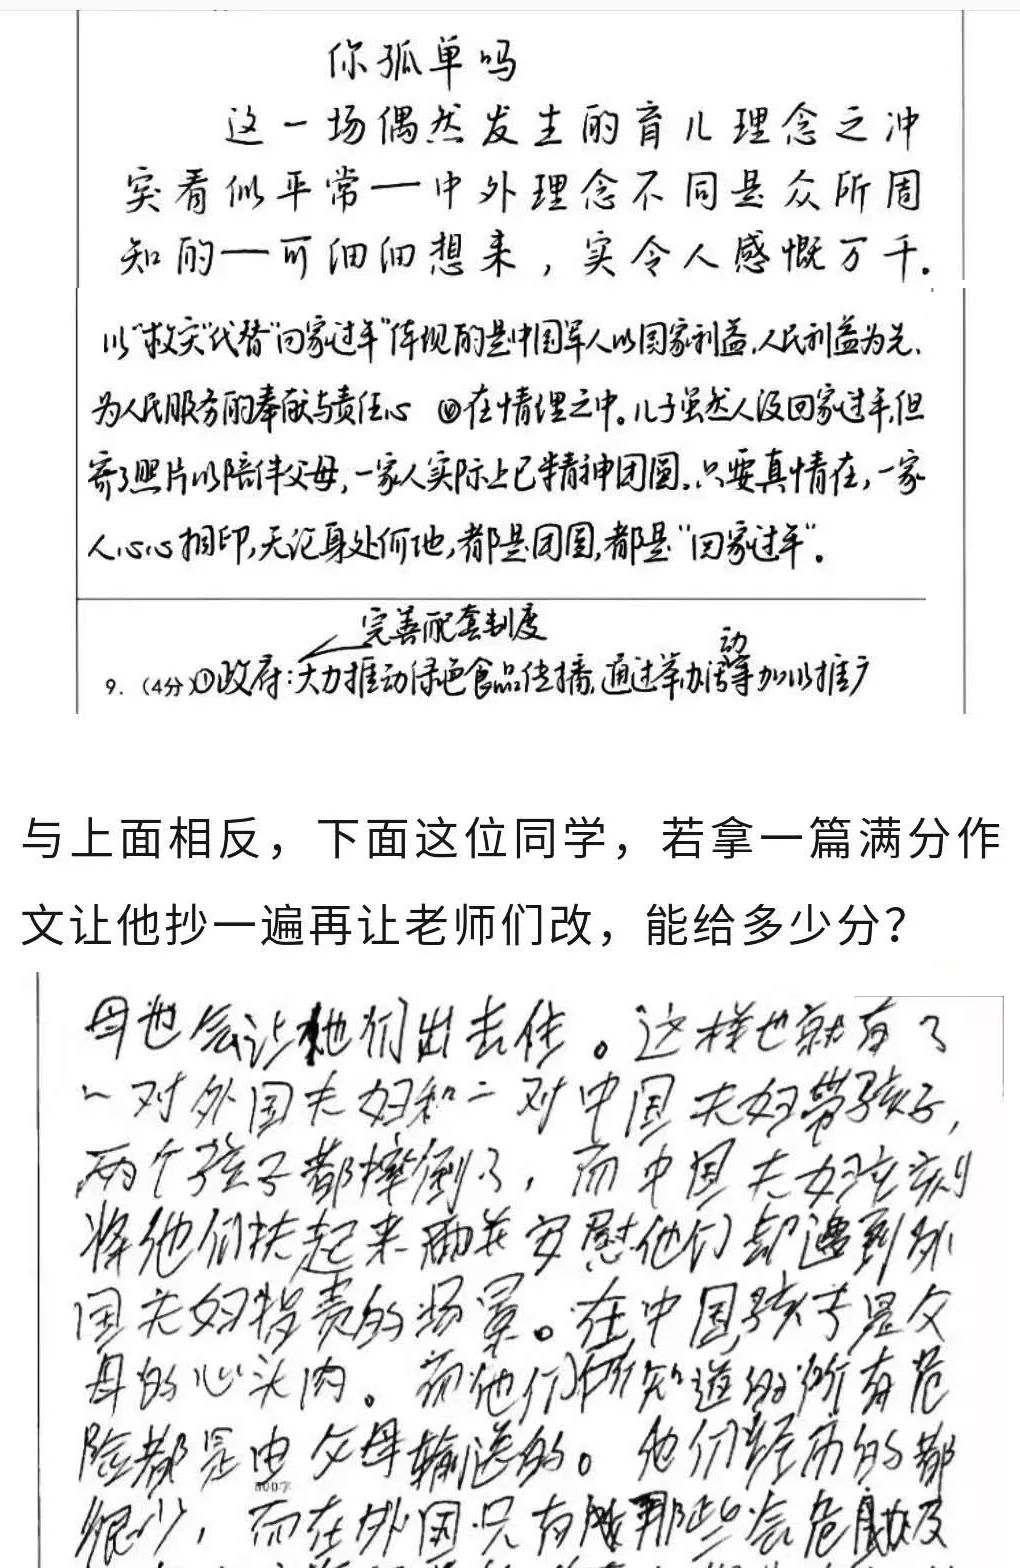 你孤单吗
这一场偶然发生的育儿理念之冲
突看似平常——中外理念不同是众所周
知的——可细细想来，实令人感慨万千.
以“救灾”代替“回家过年”体现的是中国军人以国家利益,人民利益为先、
为人民服务的奉献与责任心 ②在情理之中。儿子虽然人没回家过年,但
寄了照片以陪伴父母,一家人实际上已精神团圆。只要真情在,一家
人心心相印,无论身处何地,都是团圆,都是“回家过年”。
完善配套制度
动
9.（4分）①政府:大力推动绿色食品传播,通过举办活等加以推广
与上面相反，下面这位同学，若拿一篇满分作
文让他抄一遍再让老师们改，能给多少分？
母也会让他们出去住。这样也就有了
一对外国夫妇和一对中国夫妇带孩子,
两个孩子都摔倒了,而中国夫妇立刻
将他们扶起来并安慰他们却遭到外
国夫妇指责的场景。在中国,孩子是父
母的心头肉。而他们所知道的所有危
险都是由父母输送的。他们经历的都
800字
很少,而在外国只有那些会危及